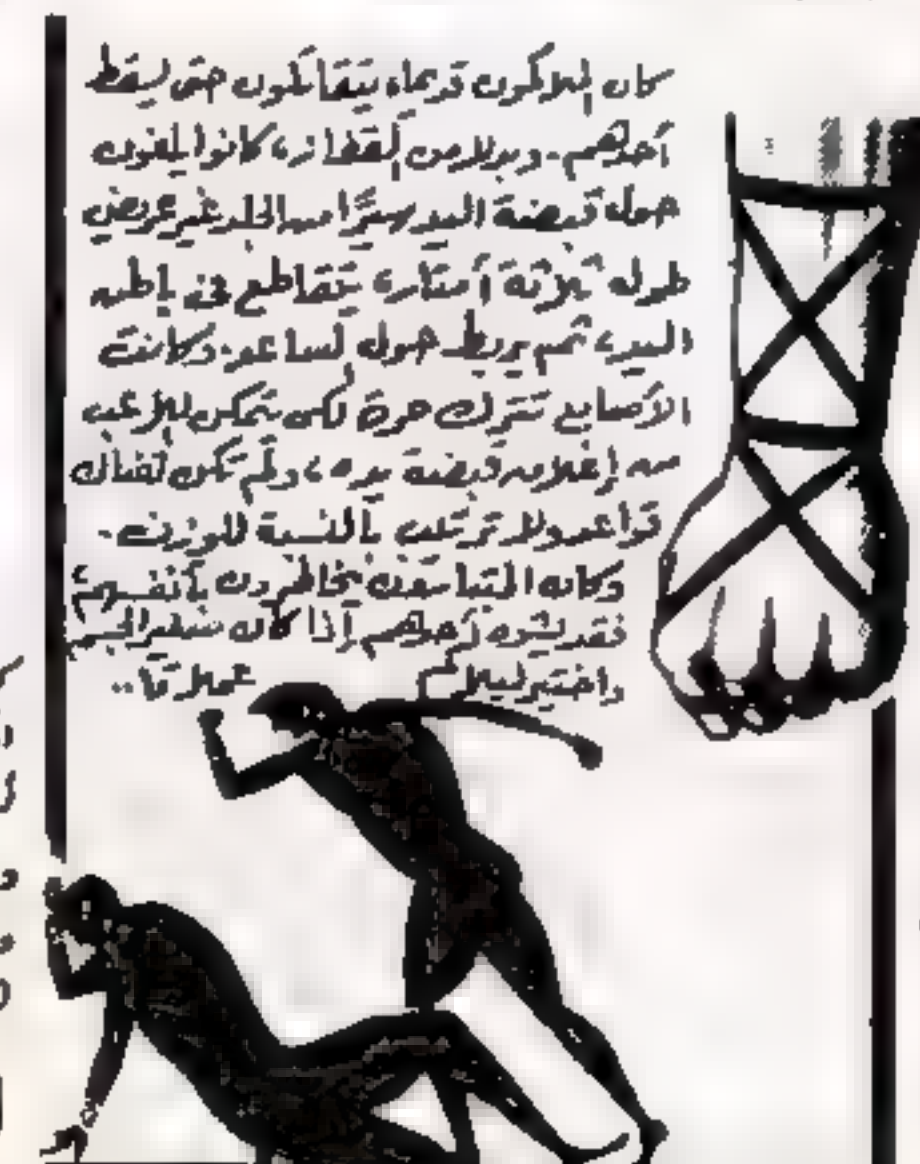 كان الملاكمون قديما، يتقاتلون حتى يسقط
أحدهم. وبدلا من القفاز، كانوا يلفون
حول قبضة اليد سيرًا من الجلد غير عريض
طوله ثلاثة أمتار، يتقاطع في باطن
اليد، ثم يربط حول الساعد. وكانت
الأصابع تترك حرة لكى يتمكن اللاعب
من إغلاق قبضة يده، ولم تكن هناك
قواعد ولا ترتيب بالنسبة للوزن.
وكان المتبارون يخاطرون بأنفسهم
فقد يشوه أحدهم إذا كان صغير الجسم
واختير ليلاكم عملاقا..